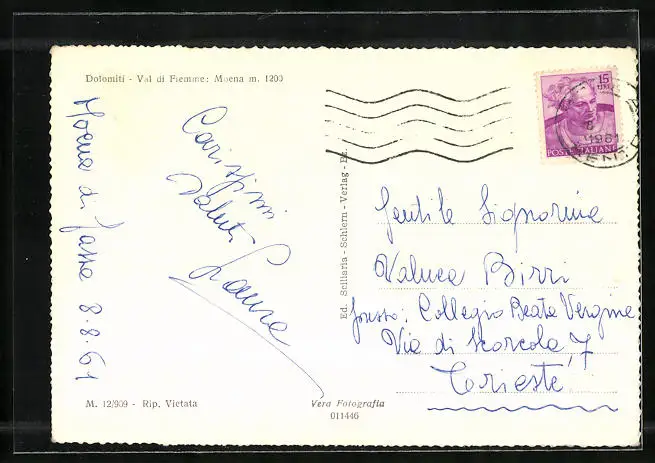 Dolomiti - Val di Fiemme: Moena m. 1200
Moena di Fassa 8.8.61
Carissimi
saluti
Laura
Ed. Sciliaria - Schlern - Verlag - Ed.
15
LIRE
POSTE ITALIANE
8
1961
TRENTO
Gentile Signorina
Valnea Birri
presso: Collegio Beata Vergine
Via di Scorcola, 7
Trieste
M. 12/909 - Rip. Vietata
Vera Fotografia
011446